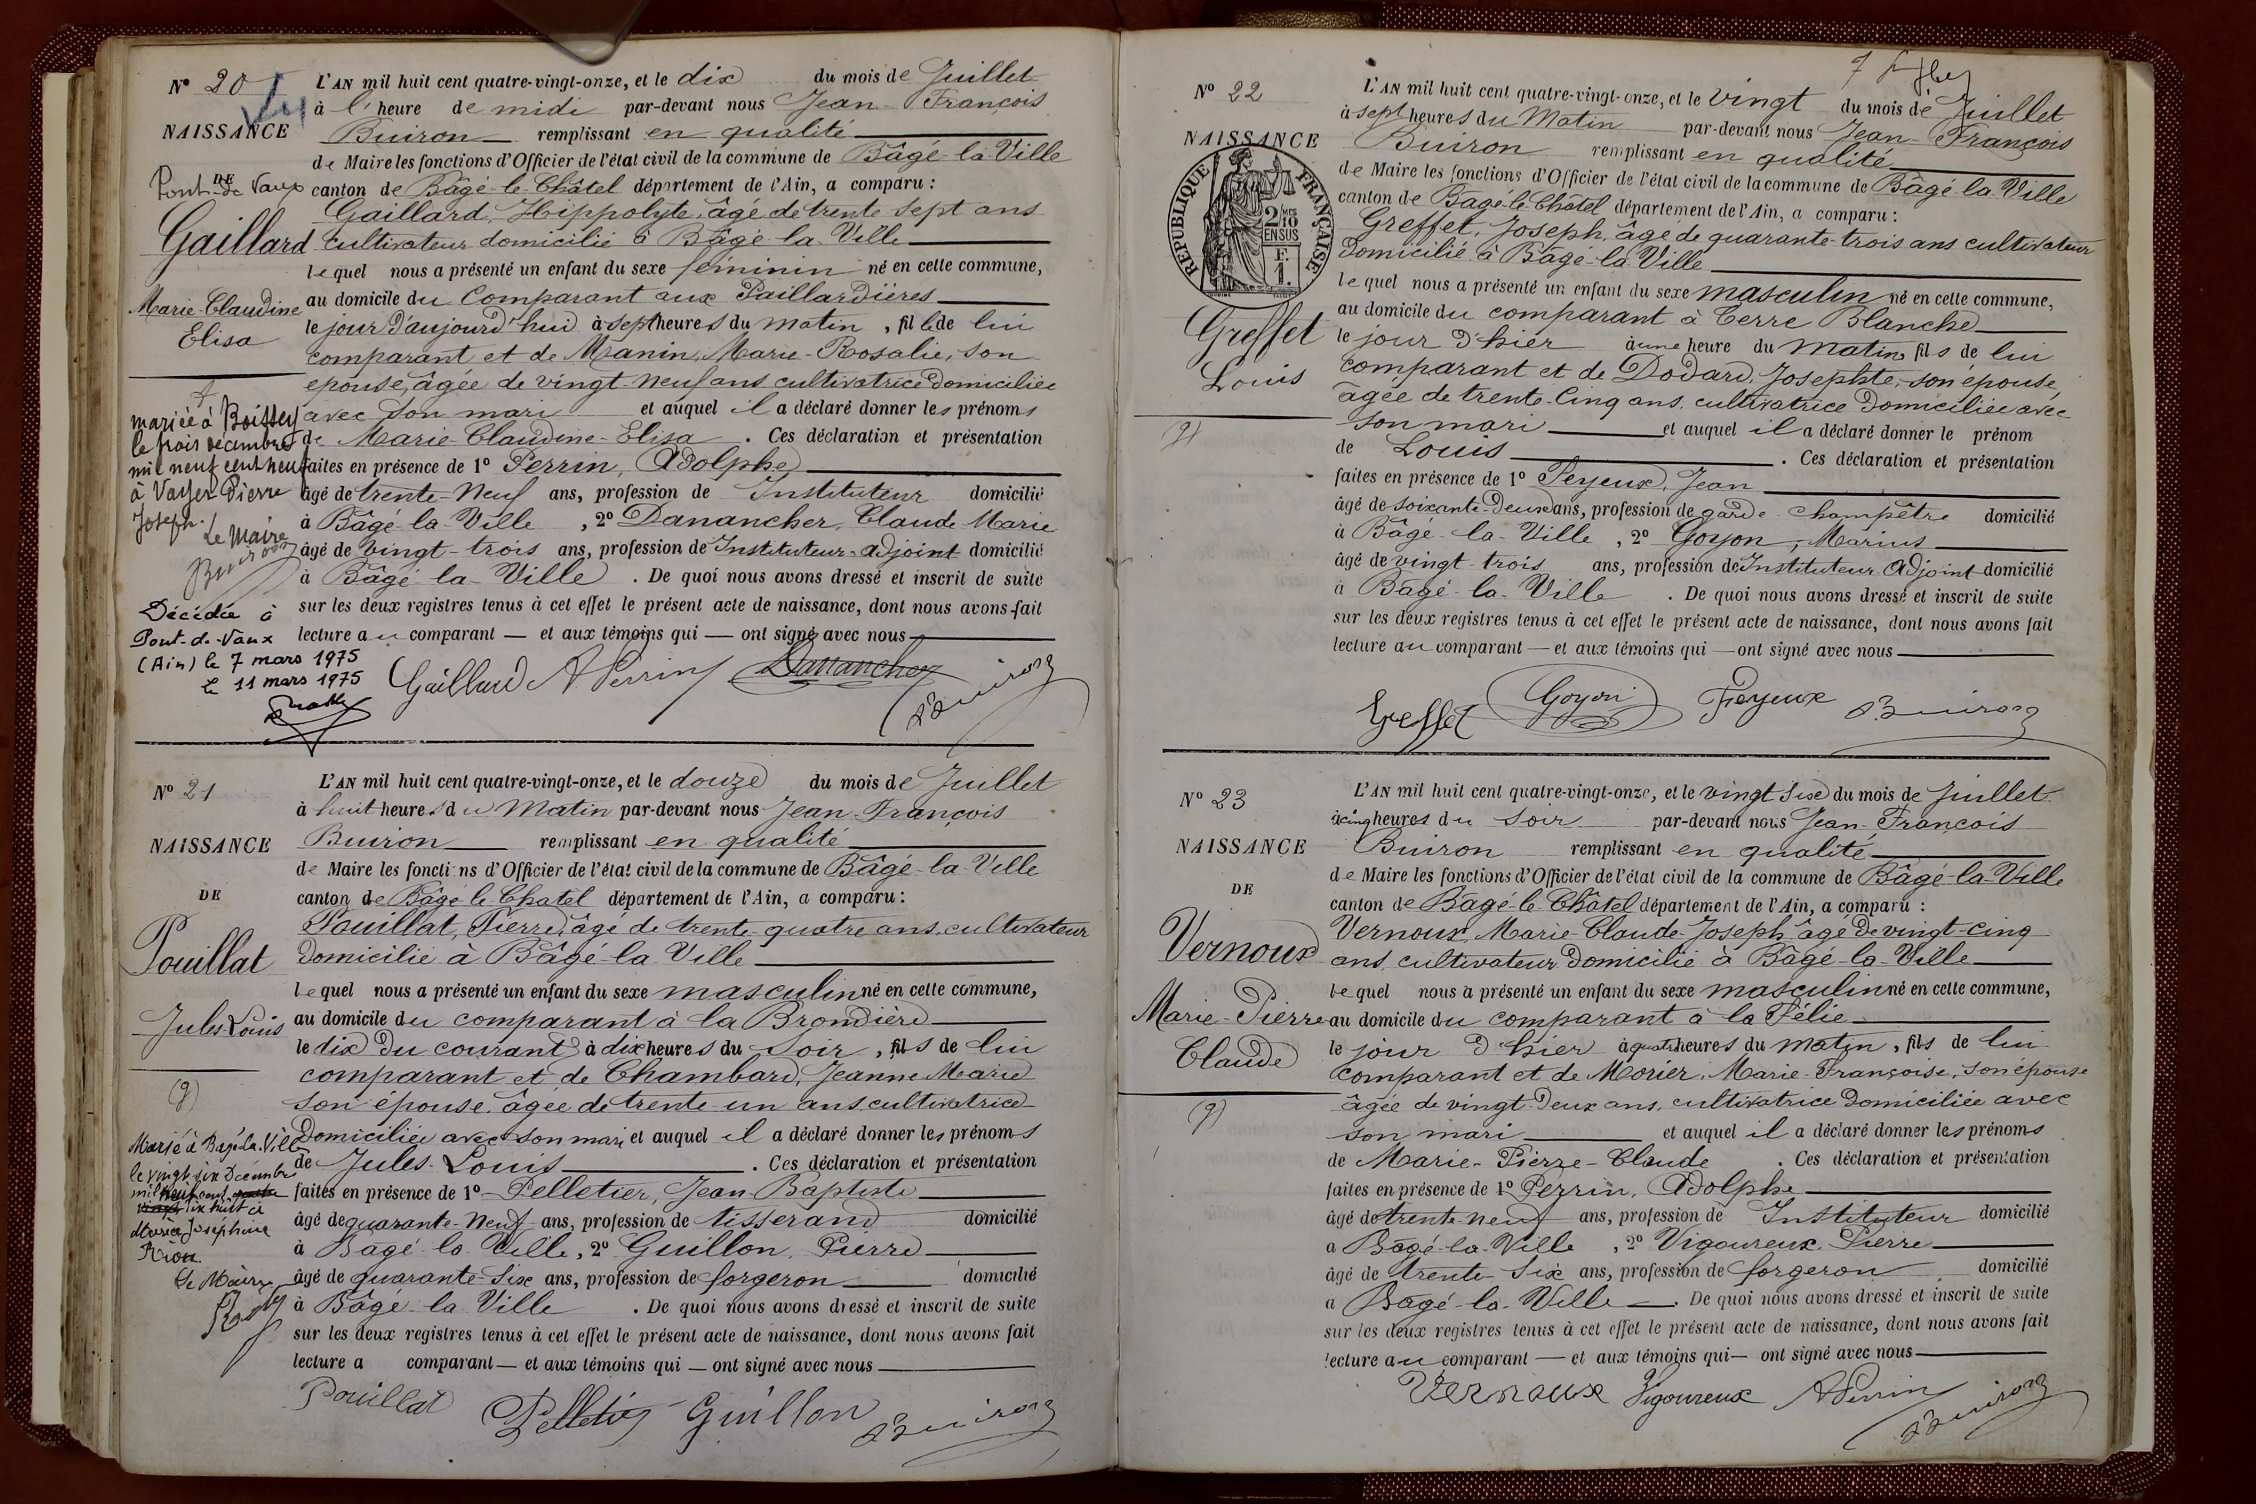 N° 20
NAISSANCE
DE
Pont-de-Vaux
Gaillard
Marie-Claudine
Elisa
mariée à Boissey
le trois décembre
mil neuf cent neuf
à Vayer Pierre
Joseph.
Le Maire
Buiron
Décédée à
Pont-de-Vaux
(Ain) le 7 mars 1975
Le 11 mars 1975
L'AN mil huit cent quatre-vingt-onze, et le dix du mois de Juillet
à l'heure de midi par-devant nous Jean-François
Buiron remplissant en qualité
de Maire les fonctions d'Officier de l'état civil de la commune de Bâgé-la-Ville
canton de Bâgé-le-Châtel département de l'Ain, a comparu :
Gaillard, Hippolyte, âgé de trente sept ans
cultivateur domicilié à Bâgé-la-Ville
lequel nous a présenté un enfant du sexe féminin né en cette commune,
au domicile du Comparant aux Paillardières
le jour d'aujourd'hui à sept heures du matin, fille de lui
comparant et de Manin, Marie-Rosalie, son
épouse, âgée de vingt-neuf ans cultivatrice domiciliée
avec son mari et auquel il a déclaré donner les prénoms
de Marie-Claudine-Elisa. Ces déclaration et présentation
faites en présence de 1° Perrin, Adolphe
âgé de trente-neuf ans, profession de Instituteur domicilié
à Bâgé-la-Ville, 2° Danancher, Claude-Marie
âgé de vingt-trois ans, profession de Instituteur-adjoint domicilié
à Bâgé-la-Ville. De quoi nous avons dressé et inscrit de suite
sur les deux registres tenus à cet effet le présent acte de naissance, dont nous avons fait
lecture au comparant — et aux témoins qui — ont signé avec nous
Gaillard A. Perrin Danancher Buiron
N° 21
NAISSANCE
DE
Pouillat
Jules-Louis
(g)
Marié à Bagé-la-Ville
le vingt six Décembre
mil neuf cent
dix huit à
Josephine
Le Maire
L'AN mil huit cent quatre-vingt-onze, et le douze du mois de Juillet
à huit heures du Matin par-devant nous Jean-François
Buiron remplissant en qualité
de Maire les fonctions d'Officier de l'état civil de la commune de Bâgé-la-Ville
canton de Bâgé-le-Chatel département de l'Ain, a comparu :
Pouillat, Pierre, âgé de trente-quatre ans, cultivateur
domicilié à Bâgé-la-Ville
lequel nous a présenté un enfant du sexe masculin né en cette commune,
au domicile du comparant à la Brondière
le dix du courant à dix heures du soir, fils de lui
comparant et de Chambard, Jeanne Marie
son épouse, âgée de trente un ans, cultivatrice
domiciliée avec son mari et auquel il a déclaré donner les prénoms
de Jules-Louis. Ces déclaration et présentation
faites en présence de 1° Pelletier, Jean-Baptiste
âgé de quarante-neuf ans, profession de tisserand domicilié
à Bâgé-la-Ville, 2° Guillon, Pierre
âgé de quarante-six ans, profession de forgeron domicilié
à Bâgé-la-Ville. De quoi nous avons dressé et inscrit de suite
sur les deux registres tenus à cet effet le présent acte de naissance, dont nous avons fait
lecture a comparant — et aux témoins qui — ont signé avec nous
Pouillat Pelletier Guillon Buiron
N° 22
NAISSANCE
RÉPUBLIQUE FRANÇAISE
2 MES
10
EN SUS
F.
1.
Greffet
Louis
(g)
L'AN mil huit cent quatre-vingt-onze, et le vingt du mois de Juillet
à sept heures du Matin par-devant nous Jean-François
Buiron remplissant en qualité
de Maire les fonctions d'Officier de l'état civil de la commune de Bâgé-la-Ville
canton de Bagé-le-Châtel département de l'Ain, a comparu :
Greffet, Joseph, âgé de quarante-trois ans cultivateur
Domicilié à Bâgé-la-Ville
lequel nous a présenté un enfant du sexe masculin né en cette commune,
au domicile du comparant à Terre Blanche
le jour d'hier à une heure du matin, fils de lui
comparant et de Dodard, Josephte, son épouse,
âgée de trente-cinq ans, cultivatrice Domiciliée avec
son mari et auquel il a déclaré donner le prénom
de Louis. Ces déclaration et présentation
faites en présence de 1° Peyeux, Jean
âgé de soixante-deux ans, profession de garde-champêtre domicilié
à Bâgé-la-Ville, 2° Goyon, Marius
âgé de vingt-trois ans, profession de Instituteur Adjoint domicilié
à Bâgé-la-Ville. De quoi nous avons dressé et inscrit de suite
sur les deux registres tenus à cet effet le présent acte de naissance, dont nous avons fait
lecture au comparant — et aux témoins qui — ont signé avec nous
Greffet Goyon Peyeux Buiron
N° 23
NAISSANCE
DE
Vernoux
Marie-Pierre
Claude
(g)
L'AN mil huit cent quatre-vingt-onze, et le vingt six du mois de Juillet
à cinq heures du soir par-devant nous Jean-François
Buiron remplissant en qualité
de Maire les fonctions d'Officier de l'état civil de la commune de Bâgé-la-Ville
canton de Bagé-le-Châtel département de l'Ain, a comparu :
Vernoux, Marie-Claude-Joseph, âgé de vingt-cinq
ans, cultivateur Domicilié à Bâgé-la-Ville
lequel nous a présenté un enfant du sexe masculin né en cette commune,
au domicile du comparant à la Félie
le jour d'hier à quatre heures du matin, fils de lui
comparant et de Morier, Marie-Françoise, son épouse
âgée de vingt-deux ans, cultivatrice Domiciliée avec
son mari et auquel il a déclaré donner les prénoms
de Marie-Pierre-Claude. Ces déclaration et présentation
faites en présence de 1° Perrin, Adolphe
âgé de trente-neuf ans, profession de Instituteur domicilié
à Bâgé-la-Ville, 2° Vigoureux, Pierre
âgé de trente-six ans, profession de forgeron domicilié
à Bâgé-la-Ville. De quoi nous avons dressé et inscrit de suite
sur les deux registres tenus à cet effet le présent acte de naissance, dont nous avons fait
lecture au comparant — et aux témoins qui — ont signé avec nous
Vernoux Vigoureux A Perrin Buiron